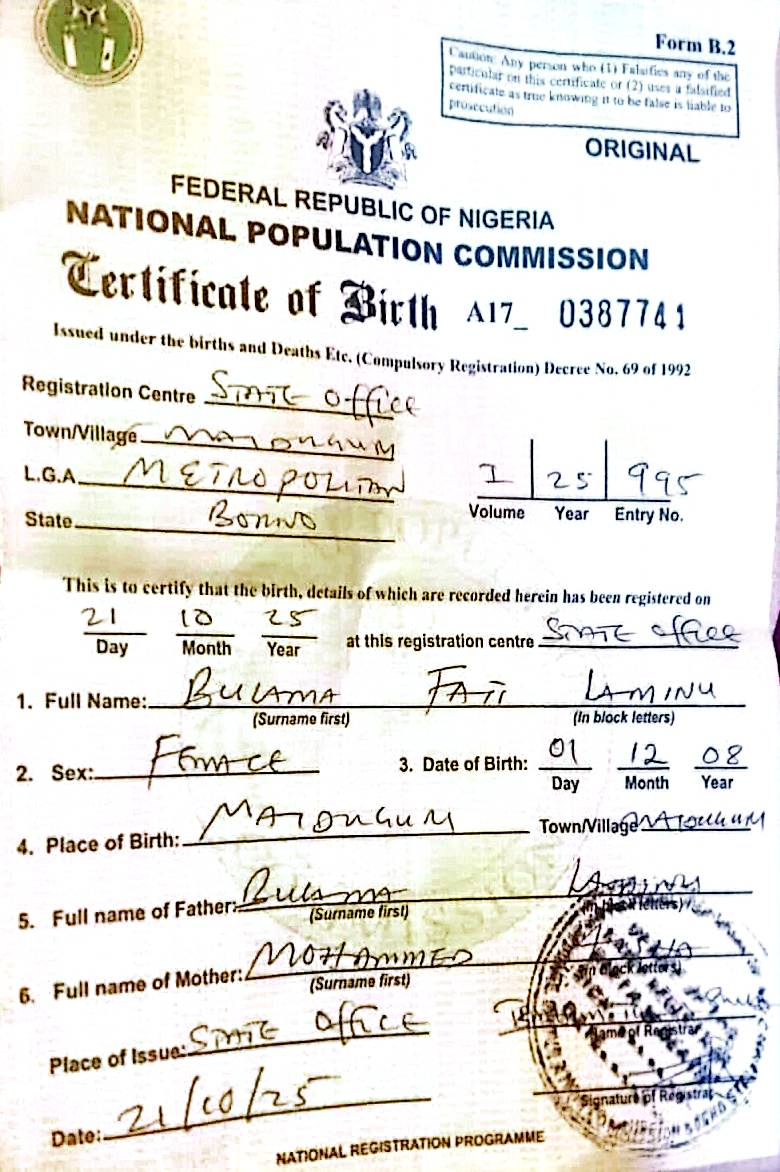 Form B.2
Caution: Any person who (1) Falsifies any of the
particular on this certificate or (2) uses a falsified
certificate as true knowing it to be false is liable to
prosecution
ORIGINAL
FEDERAL REPUBLIC OF NIGERIA
NATIONAL POPULATION COMMISSION
Certificate of Birth A17_ 0387741
Issued under the births and Deaths Etc. (Compulsory Registration) Decree No. 69 of 1992
Registration Centre STATE OFFICE
Town/Village MAIDUGURI
L.G.A. METROPOLITAN
State BORNO
I 25 995
Volume Year Entry No.
This is to certify that the birth, details of which are recorded herein has been registered on
21 10 25 at this registration centre STATE OFFICE
Day Month Year
1. Full Name: BULAMA FATI LAMINU
(Surname first) (In block letters)
2. Sex: FEMALE 3. Date of Birth: 01 12 08
Day Month Year
4. Place of Birth: MAIDUGURI Town/Village MAIDUGURI
5. Full name of Father: BULAMA LAMINU
(Surname first) (In block letters)
6. Full name of Mother: MOHAMMED
(Surname first) (In block letters)
Place of Issue: STATE OFFICE
Name of Registrar
Signature of Registrar
Date: 21/10/25
NATIONAL REGISTRATION PROGRAMME